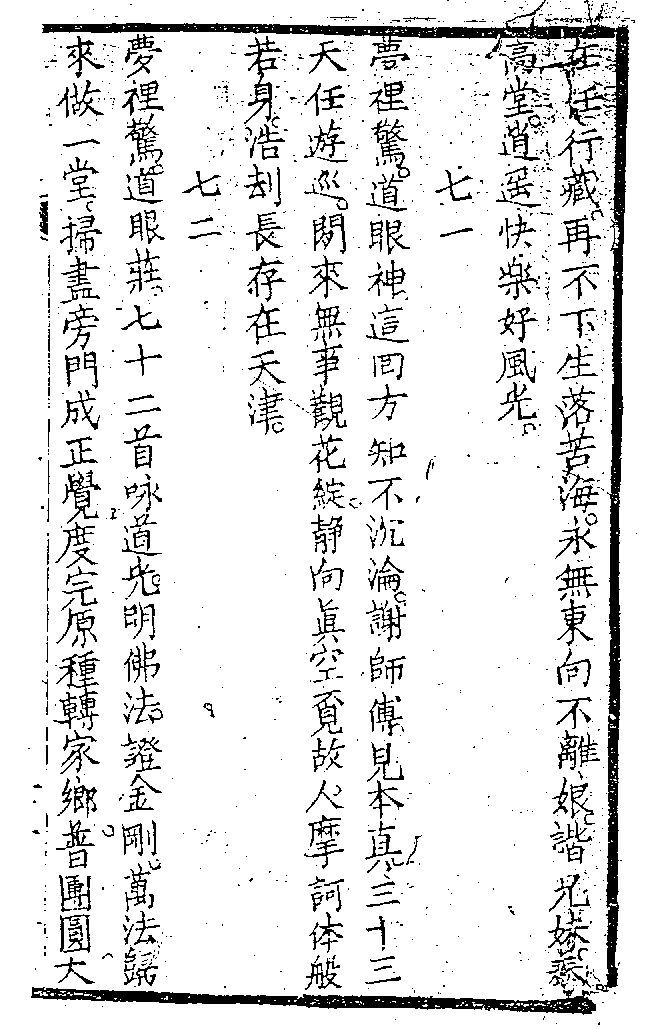 在任行藏。再不下生落苦海。永無東向不離娘。諧兄妹。忝
高堂。逍遥快樂好風光。
七一
夢裡驚。道眼神這囘方知不沉淪。謝師傅見本真。三十三
天任遊巡。閒來無事觀花綻。静向眞空覓故人。摩訶体般
若身。浩刼長存在天津。
七二
夢裡驚。道眼莊。七十二首咏道光。明佛法。證金剛。萬法歸
來做一堂。掃盡旁門成正覺。度完原種轉家鄉。普團圓大